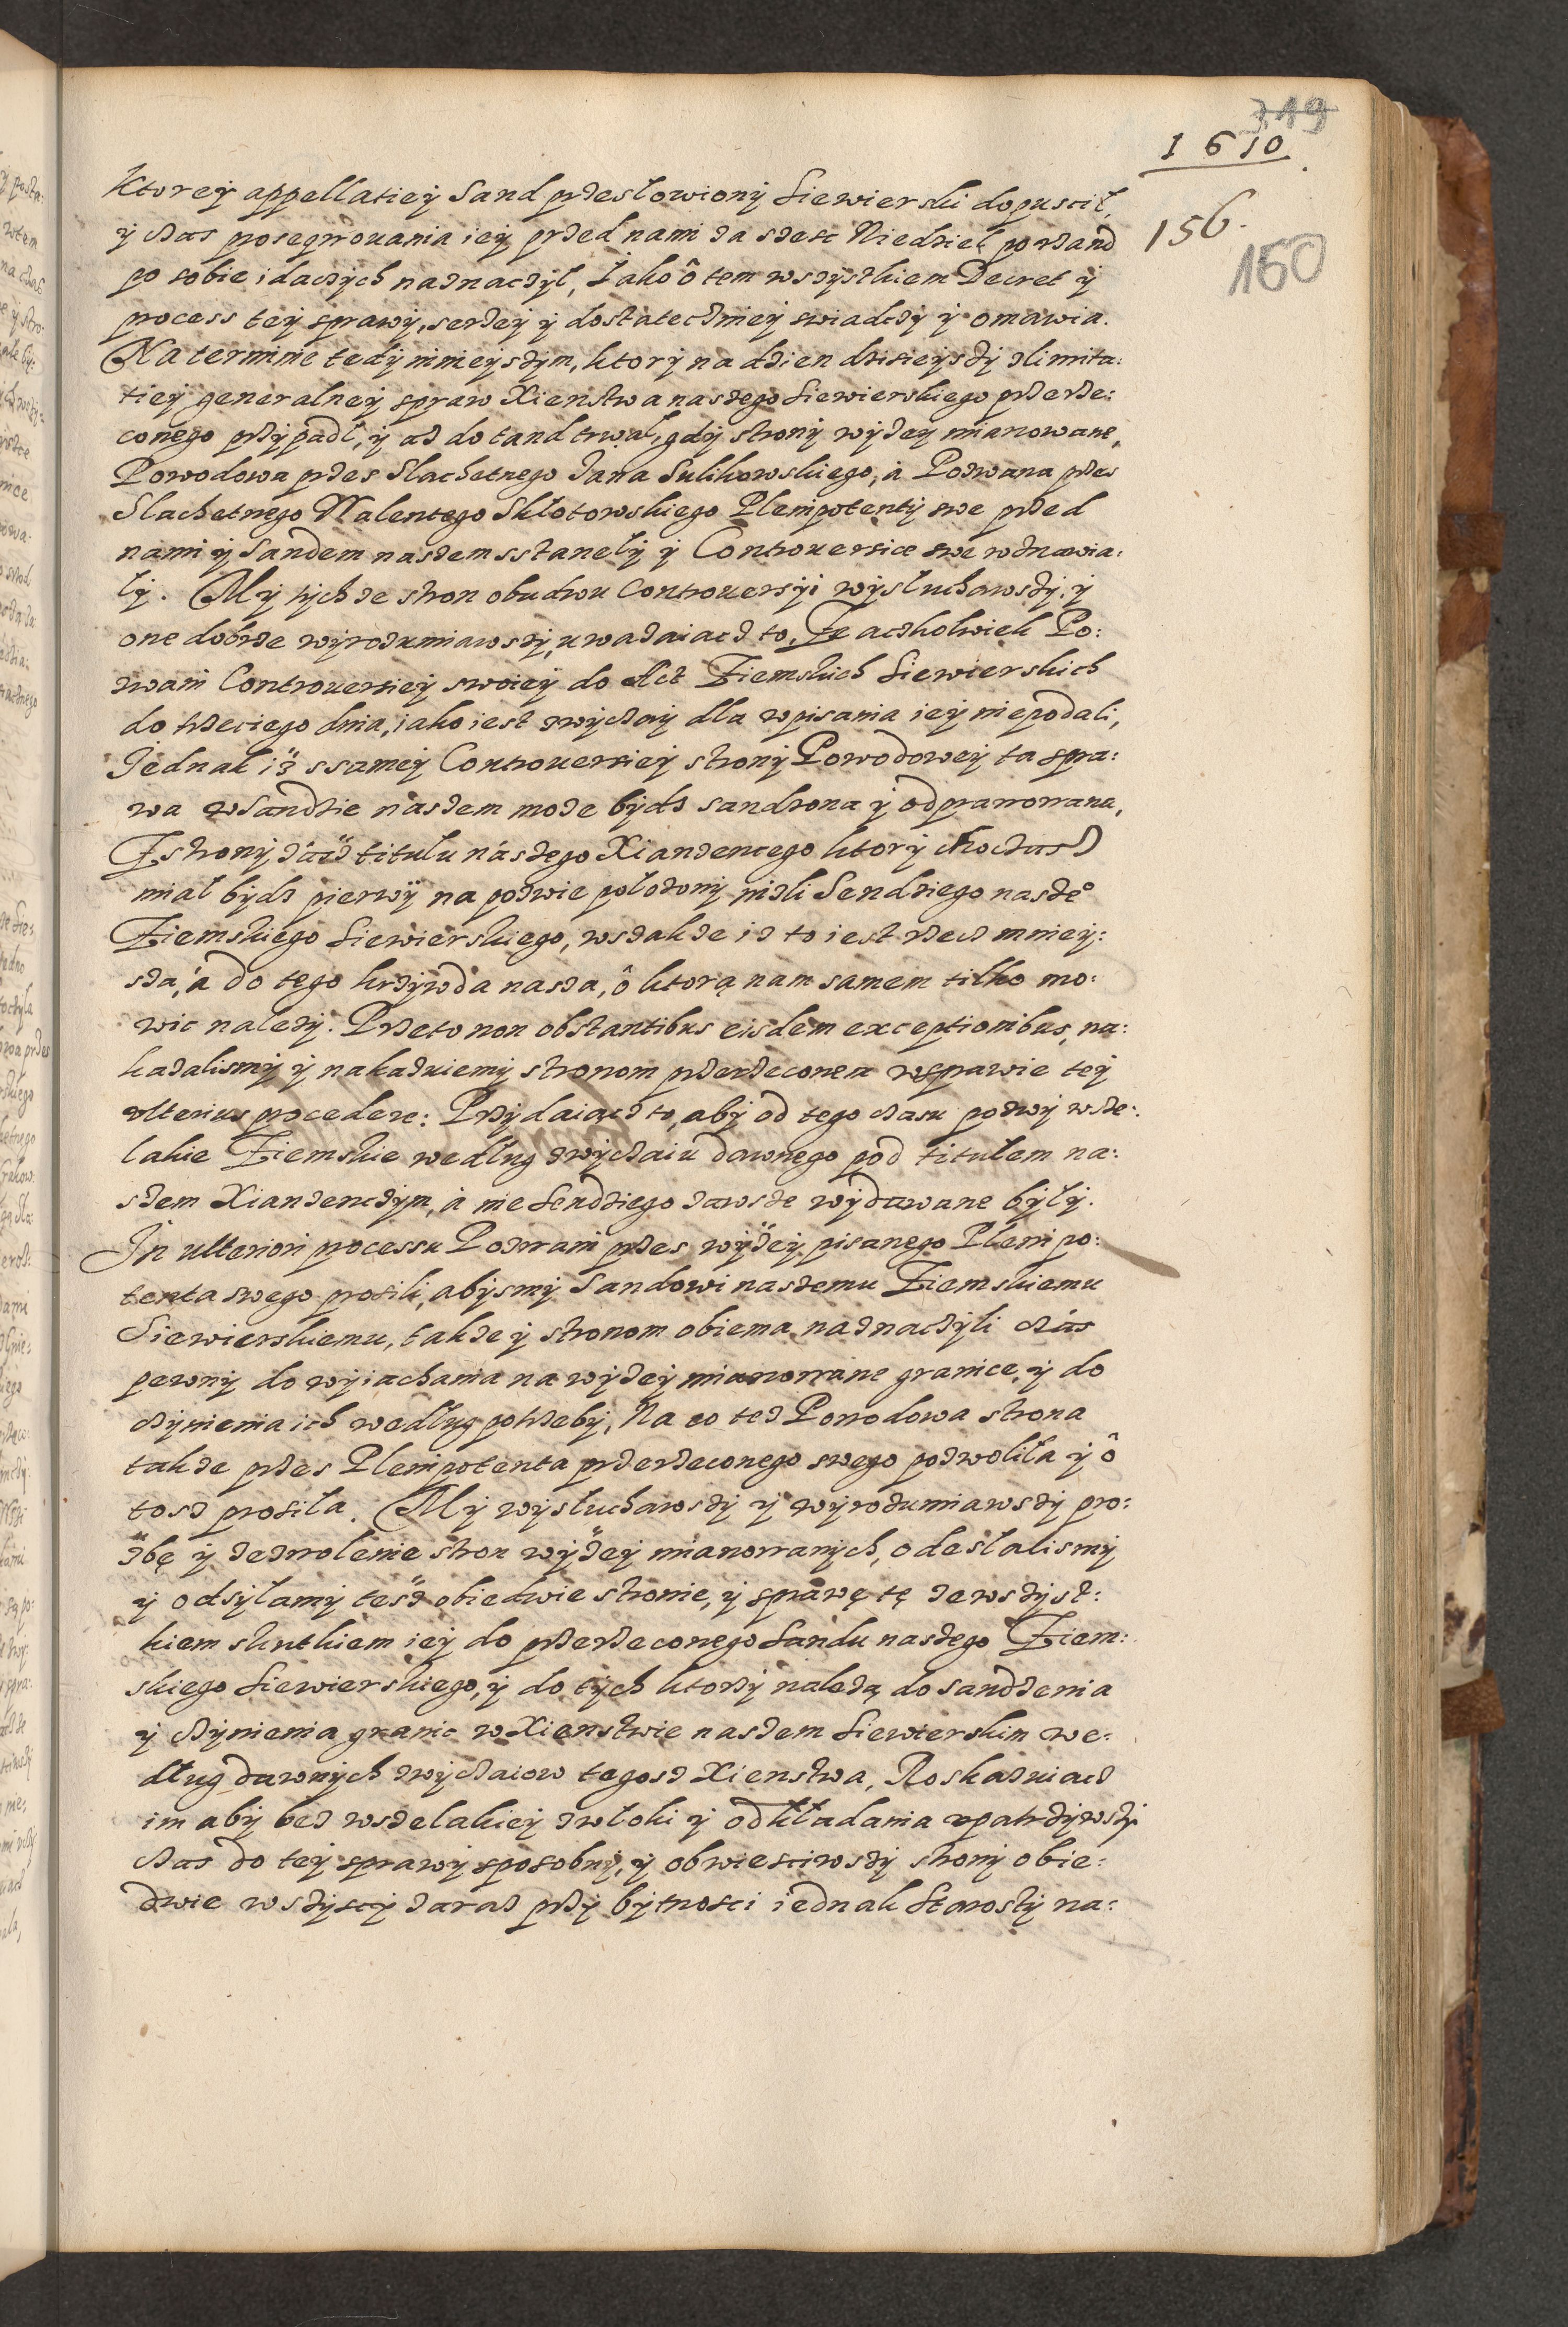 319
1610
156.
160
Ktorey appellatiey Sand przeslowiony Siewierski dopuscił,
y czas prosequowania iey przed nami za szesc Niedziel porzand
po sobie idaczych naznaczył, Jako ô tem wszystkiem Decret y
process tey sprawy, serzey y dostateczniey swiadczy y omawia.
Na terminie tedy ninieyszym, ktory na dzien dzisieyszy zlimita:
tiey generalney spraw Xienstwa naszego Siewierskiego przerze:
conego przypadł, y az do tand trwał, gdy strony wyzey mianowane,
Powodowa przes Slachetnego Jana Sulikowskiego, à Pozwana przes
Slachetnego Walentego Skłotowskiego Plenipotenty swe przed
nami y Sandem naszem sstanęły y Controuersie swe wznawia:
ły. My tych ze stron obudwu Controuersyi wysłuchawszy, y
one dobrze wyrozumiawszy, uwazaiacz to, Ze aczkolwiek Po:
zwani Controuersiey swoiey do Act Ziemskich Siewierskich
do trzeciego dnia, iako iest zwyczay dla wpisania iey niepodali,
Jednak iż ssamey Controuersiey strony Powodowey ta spra:
wa wSandzie naszem moze bydz sandzona y odprawowana,
Zstrony zasz titulu naszego Xianzencego ktory choczasz
miał bydz pierwy na pozwie położony nizli Sendziego nasze°
Ziemskiego Siewierskiego, wszakze iz to iest rzecz mniey:
sza, à do tego krzywda nasza, ô ktorą nam samem tilko mo:
wic nalezy. Przeto non obstantibus eisdem exceptionibus, na:
kazalismy y nakazuiemy stronom przerzeconem wsprawie tey
vlterius procedere: Przydaiącz to, aby od tego czasu pozwy wsze:
lakie Ziemskie według zwyczaiu dawnego pod titułem na:
szem Xianzenczym, à nie Sendziego zawsze wydawane były.
In ulteriori processu Pozwani przes wyżey pisanego Plenipo:
tenta swego prosili, abysmy Sandowi naszemu Ziemskiemu
Siewierskiemu, takze y stronom obiema naznaczyli czas
pewny do wyiachania na wyzey mianowane granice, y do
czynienia ich według potrzeby, Na co tez Powodowa strona
takze przes Plenipotenta przerzeconego swego pozwoliła y ô
tosz prosiła. My wysłuchawszy y wyrozumiawszy pro:
zbę y zezwolenie stron wyżey mianowanych, odesłalismy
y odsyłamy tesz obiedwie stronie, y sprawę tę zewszyst:
kiem skutkiem iey do przerzeconego Sandu naszego Ziem:
skiego Siewierskiego, y do tych ktorzy nalezą do sandzenia
y czynienia granic w Xienstwie naszem Siewierskim we:
dług dawnych zwyczaiow tegosz Xienstwa, Roskazuiacz
im aby bez wszelakiey zwłoki y odkładania upatrzywszy
czas do tey sprawy sposobny, y obwiesciwszy strony obie:
dwie wszyscy zaraz przy bytnosci iednak Starosty na: